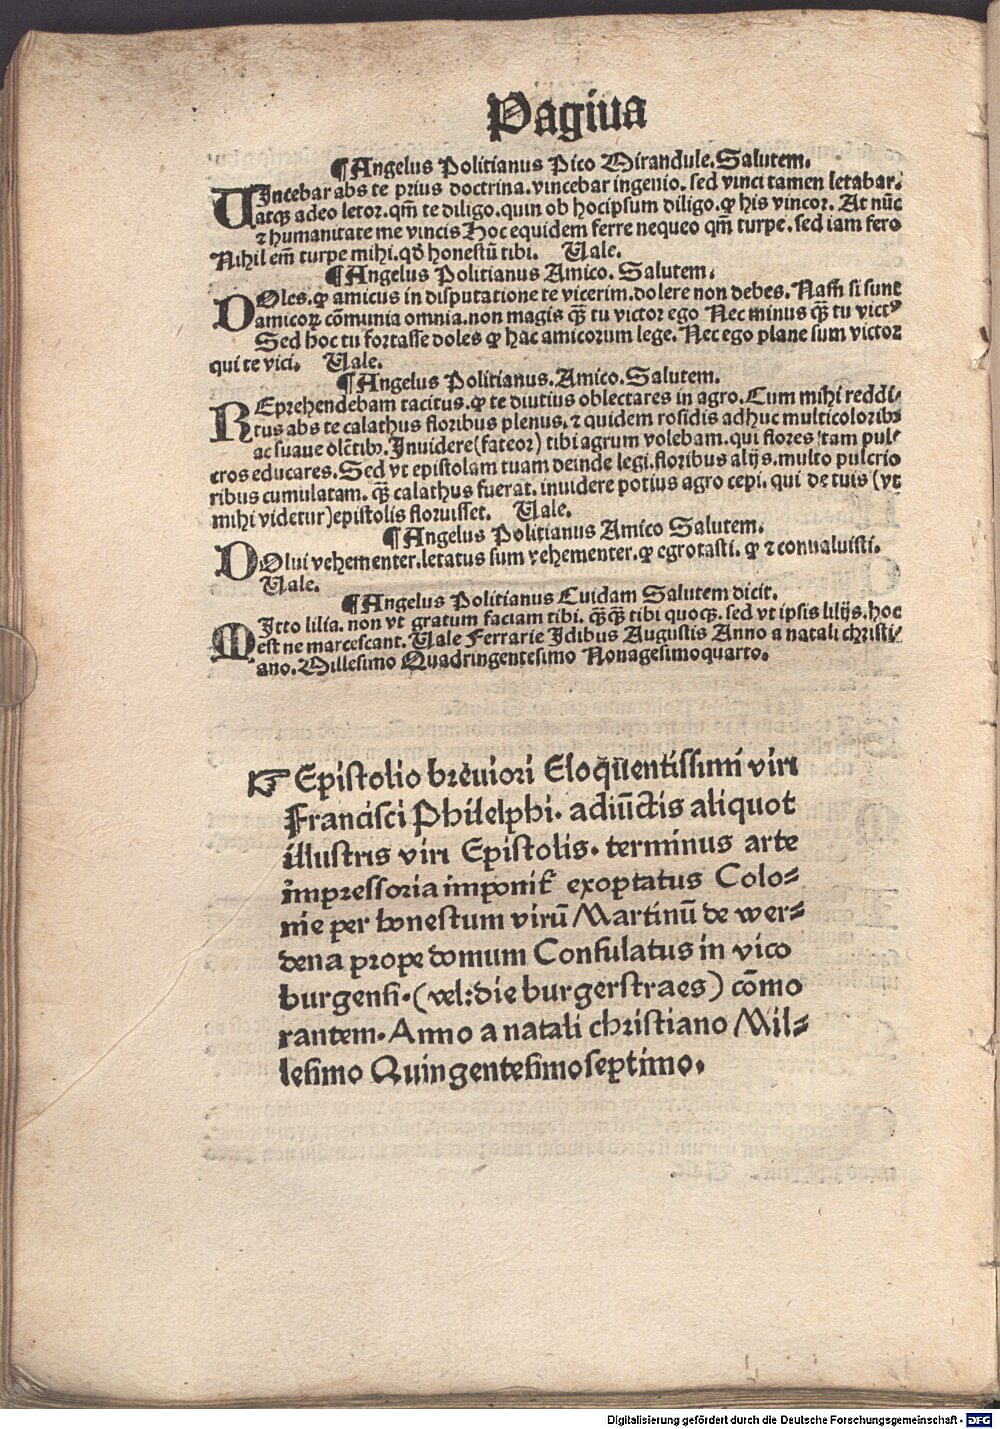 Pagiua
¶Angelus Politianus Pico Mirandule. Salutem.
VIncebar abs te prius doctrina. vincebar ingenio. sed vinci tamen letabar.
atqꝫ adeo letor. qm̄ te diligo. quin ob hocipsum diligo. ꝙ his vincor. At nūc
⁊ humanitate me vincis Hoc equidem ferre nequeo qm̄ turpe. sed iam fero
Nihil em̄ turpe mihi. qđ honestū tibi. Uale.
¶Angelus Politianus Amico. Salutem.
DOles. ꝙ amicus in disputatione te vicerim. dolere non debes. Nam̄ si sunt
amicoꝝ cōmunia omnia. non magis qꝫ̄ tu victor ego Nec minus qꝫ̄ tu victꝰ
Sed hoc tu fortasse doles ꝙ hac amicorum lege. Nec ego plane sum victor
qui te vici. Uale.
¶Angelus Politianus. Amico. Salutem.
REprehendebam tacitus. ꝙ te diutius oblectares in agro. Cum mihi reddi/
tus abs te calathus floribus plenus. ⁊ quidem rosidis adhuc multicoloribꝫ
ac suaue olētibꝫ. Inuidere (fateor) tibi agrum volebam. qui flores tam pul/
cros educares. Sed vt epistolam tuam deinde legi. floribus alijs. multo pulcrio
ribus cumulatam. qꝫ̄ calathus fuerat. inuidere potius agro cepi. qui de tuis (vt
mihi videtur) epistolis floruisset. Uale.
¶Angelus Politianus Amico Salutem.
DOlui vehementer. letatus sum vehementer. ꝙ egrotasti. ꝙ ⁊ conualuisti.
Uale.
¶Angelus Politianus Cuidam Salutem dicit.
MItto lilia. non vt gratum faciam tibi. qꝫ̄qꝫ̄ tibi quoqꝫ. sed vt ipsis lilijs. hoc
est ne marcescant. Uale Ferrarie Idibus Augustis Anno a natali christi/
ano. Millesimo Quadringentesimo Nonagesimoquarto.
☞ Epistolio breuiori Eloquentissimi viri
Francisci Philelphi. adiūctis aliquot
illustris viri Epistolis. terminus arte
impressoria imponit̄ exoptatus Colo⸗
nie per honestum virū Martinū de wer⸗
dena prope domum Consulatus in vico
burgensi. (vel: die burgerstraes) cōmo
rantem. Anno a natali christiano Mil⸗
lesimo Quingentesimoseptimo.
Digitalisierung gefördert durch die Deutsche Forschungsgemeinschaft - DFG